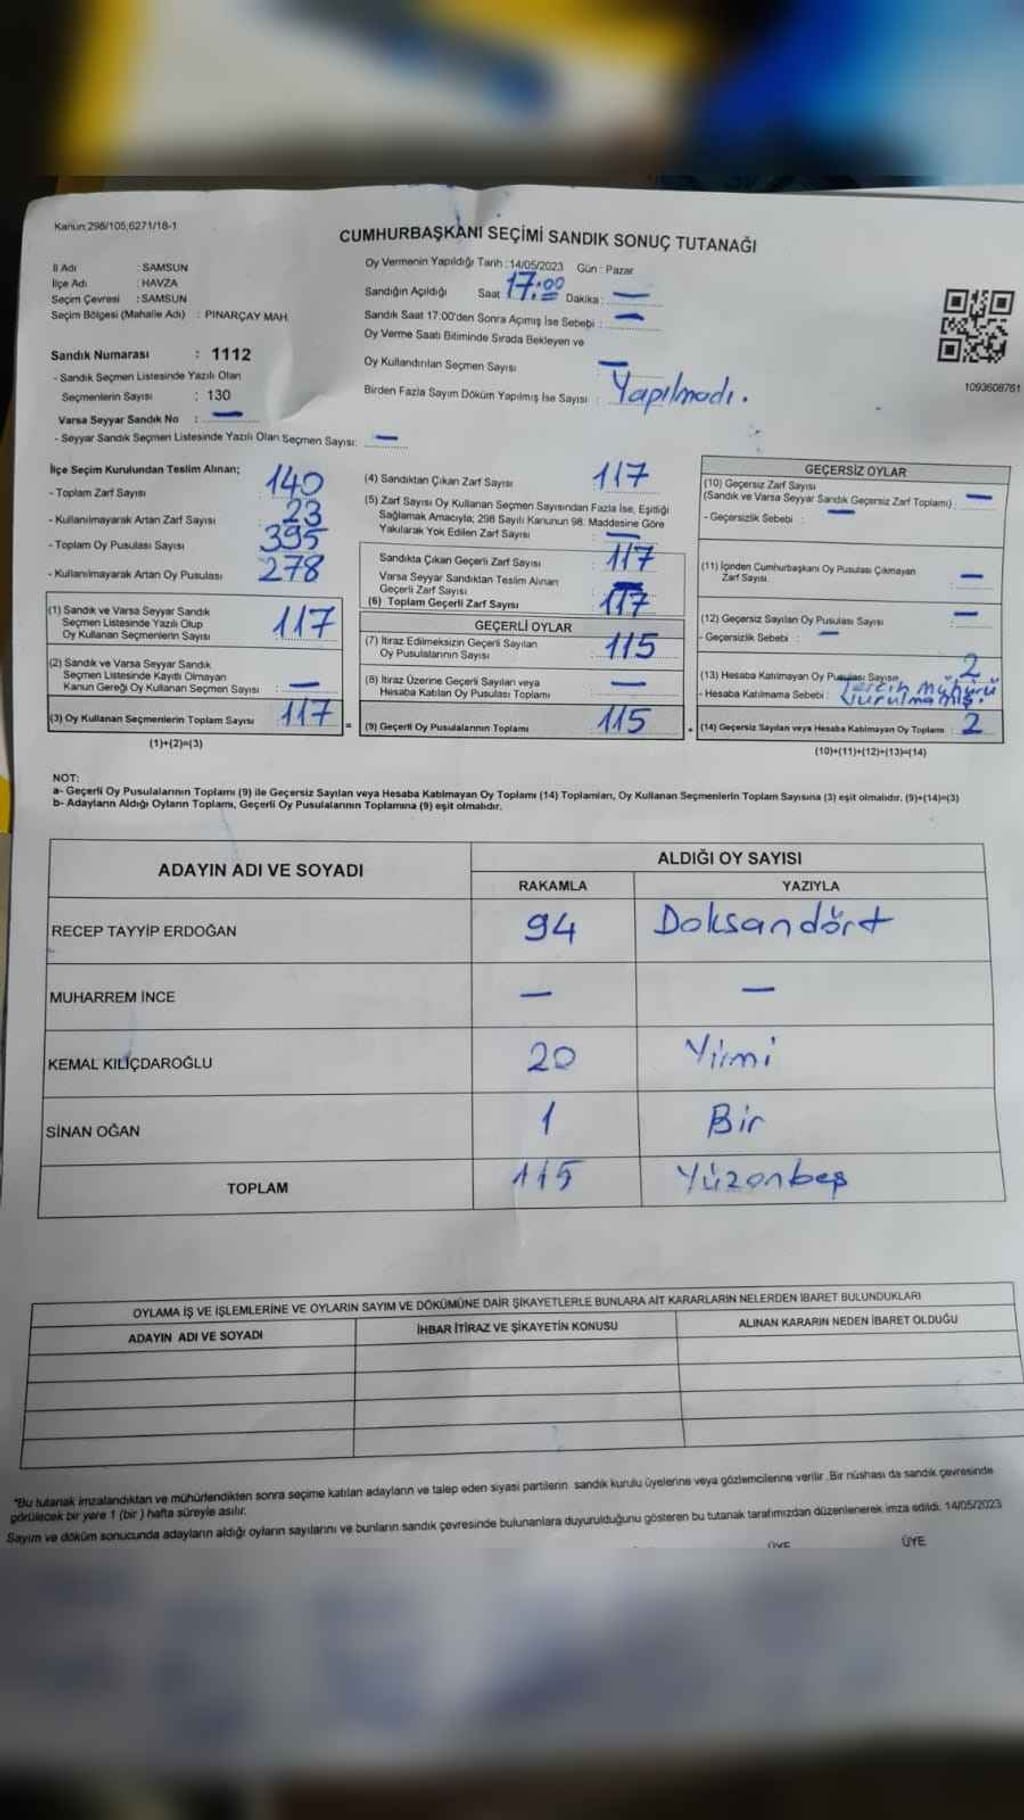 Kanun;298/105,6271/18-1
CUMHURBAŞKANI SEÇİMİ SANDIK SONUÇ TUTANAĞI
İl Adı : SAMSUN
İlçe Adı : HAVZA
Seçim Çevresi : SAMSUN
Seçim Bölgesi (Mahalle Adı) : PINARÇAY MAH.
Sandık Numarası : 1112
- Sandık Seçmen Listesinde Yazılı Olan
Seçmenlerin Sayısı : 130
Varsa Seyyar Sandık No : —
- Seyyar Sandık Seçmen Listesinde Yazılı Olan Seçmen Sayısı: —
Oy Vermenin Yapıldığı Tarih : 14/05/2023 Gün : Pazar
Sandığın Açıldığı Saat 17:00 Dakika : —
Sandık Saat 17:00'den Sonra Açımış İse Sebebi : —
Oy Verme Saati Bitiminde Sırada Bekleyen ve
Oy Kullandırılan Seçmen Sayısı —
Birden Fazla Sayım Döküm Yapılmış İse Sayısı : Yapılmadı.
1093608761
İlçe Seçim Kurulundan Teslim Alınan;
- Toplam Zarf Sayısı 140
- Kullanılmayarak Artan Zarf Sayısı 23
- Toplam Oy Pusulası Sayısı 395
- Kullanılmayarak Artan Oy Pusulası 278
(1) Sandık ve Varsa Seyyar Sandık
Seçmen Listesinde Yazılı Olup
Oy Kullanan Seçmenlerin Sayısı 117
(2) Sandık ve Varsa Seyyar Sandık
Seçmen Listesinde Kayıtlı Olmayan
Kanun Gereği Oy Kullanan Seçmen Sayısı : —
(3) Oy Kullanan Seçmenlerin Toplam Sayısı 117
(1)+(2)=(3)
=
(4) Sandıktan Çıkan Zarf Sayısı 117
(5) Zarf Sayısı Oy Kullanan Seçmen Sayısından Fazla İse, Eşitliği
Sağlamak Amacıyla; 298 Sayılı Kanunun 98. Maddesine Göre
Yakılarak Yok Edilen Zarf Sayısı —
Sandıkta Çıkan Geçerli Zarf Sayısı 117
Varsa Seyyar Sandıktan Teslim Alınan
Geçerli Zarf Sayısı —
(6) Toplam Geçerli Zarf Sayısı 117
GEÇERLİ OYLAR
(7) İtiraz Edilmeksizin Geçerli Sayılan
Oy Pusulalarının Sayısı 115
(8) İtiraz Üzerine Geçerli Sayılan veya
Hesaba Katılan Oy Pusulası Toplamı —
(9) Geçerli Oy Pusulalarının Toplamı 115
+
GEÇERSİZ OYLAR
(10) Geçersiz Zarf Sayısı
(Sandık ve Varsa Seyyar Sandık Geçersiz Zarf Toplamı) : —
- Geçersizlik Sebebi : —
(11) İçinden Cumhurbaşkanı Oy Pusulası Çıkmayan
Zarf Sayısı —
(12) Geçersiz Sayılan Oy Pusulası Sayısı —
- Geçersizlik Sebebi : —
(13) Hesaba Katılmayan Oy Pusulası Sayısı 2
- Hesaba Katılmama Sebebi : Tercih Mührü
Vurulmamış.
(14) Geçersiz Sayılan veya Hesaba Katılmayan Oy Toplamı : 2
(10)+(11)+(12)+(13)=(14)
NOT:
a- Geçerli Oy Pusulalarının Toplamı (9) ile Geçersiz Sayılan veya Hesaba Katılmayan Oy Toplamı (14) Toplamları, Oy Kullanan Seçmenlerin Toplam Sayısına (3) eşit olmalıdır. (9)+(14)=(3)
b- Adayların Aldığı Oyların Toplamı, Geçerli Oy Pusulalarının Toplamına (9) eşit olmalıdır.
ADAYIN ADI VE SOYADI ALDIĞI OY SAYISI
RAKAMLA YAZIYLA
RECEP TAYYİP ERDOĞAN 94 Doksandört
MUHARREM İNCE — —
KEMAL KILIÇDAROĞLU 20 Yirmi
SİNAN OĞAN 1 Bir
TOPLAM 115 Yüzonbeş
OYLAMA İŞ VE İŞLEMLERİNE VE OYLARIN SAYIM VE DÖKÜMÜNE DAİR ŞİKAYETLERLE BUNLARA AİT KARARLARIN NELERDEN İBARET BULUNDUKLARI
ADAYIN ADI VE SOYADI İHBAR İTİRAZ VE ŞİKAYETİN KONUSU ALINAN KARARIN NEDEN İBARET OLDUĞU
*Bu tutanak imzalandıktan ve mühürlendikten sonra seçime katılan adayların ve talep eden siyasi partilerin sandık kurulu üyelerine veya gözlemcilerine verilir. Bir nüshası da sandık çevresinde
görülecek bir yere 1 (bir ) hafta süreyle asılır.
Sayım ve döküm sonucunda adayların aldığı oyların sayılarını ve bunların sandık çevresinde bulunanlara duyurulduğunu gösteren bu tutanak tarafımızdan düzenlenerek imza edildi. 14/05/2023
ÜYE ÜYE